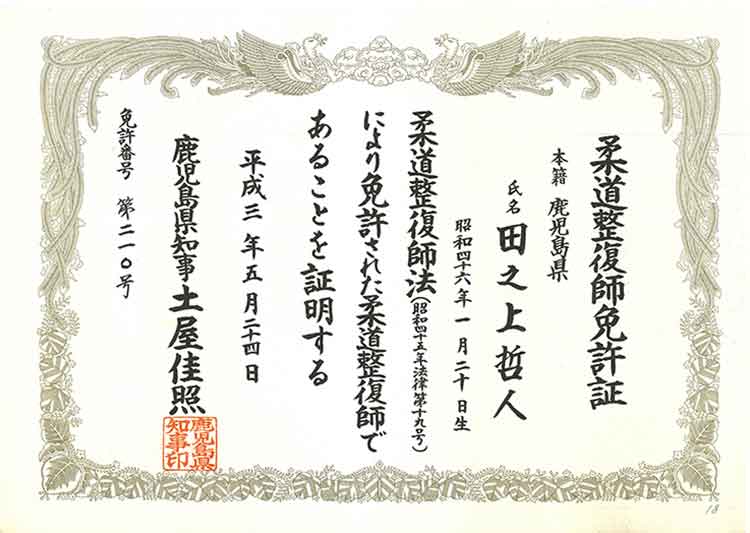 柔道整復師免許証
本籍 鹿児島県
氏名 田之上哲人
昭和四十六年一月二十日生
柔道整復師法(昭和四十五年法律第十九号)
により免許された柔道整復師で
あることを証明する
平成三年五月二十四日
鹿児島県知事 土屋佳照
鹿児島県
知事印
免許番号 第二一〇号
18